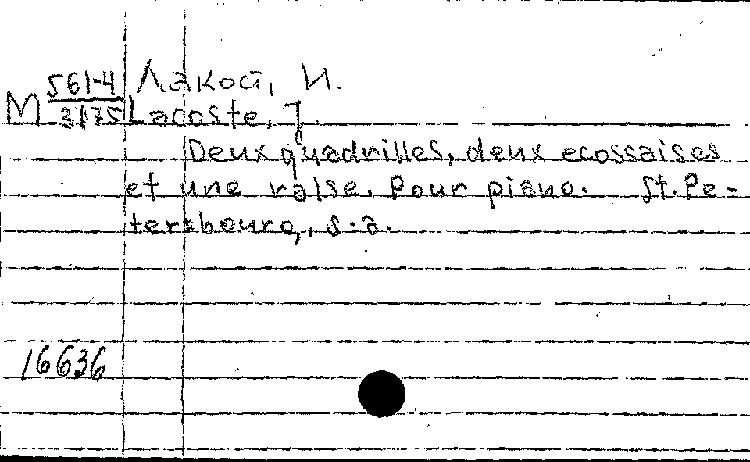 М 561-4/3175 Лакост, И.
Lacoste, J.
Deux quadrilles, deux ecossaises
et une valse. Pour piano. St.Pe-
tersbourg, s.a.
16636